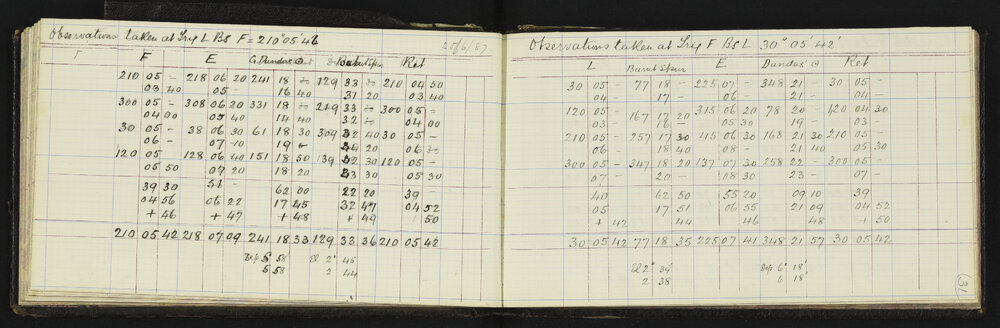 Observations taken at Trig L Bs F = 210° 05' 42
F E G. Dundas Burnt Spur Ret
210 05 – 218 06 20 241 18 – 129 33 – 210 04 50
03 40 05 – 16 40 31 20 03 40
300 05 – 308 06 20 331 18 – 219 33 – 300 05 –
04 00 05 40 14 40 32 – 04 00
30 05 – 38 06 30 61 18 30 309 32 40 30 05 –
06 – 07 10 19 – 06 30
120 05 – 128 06 40 151 18 50 139 32 30 120 05 –
05 50 07 20 18 20 33 30 05 30
39 30 51 – 62 00 22 20 39 –
04 56 06 22 17 45 32 47 04 52
+ 46 + 47 + 48 + 49 + 50
210 05 42 218 07 09 241 18 33 129 33 36 210 05 42
Dep 5° 58' El 2° 45
5 58 2 44
Observations taken at Trig F Bs L 30° 05' 42'
L Burnt Spur E Dundas Ret
30 05 – 77 18 – 225 07 – 348 21 – 210 04 50
04 – 17 – 06 – 21 – 04 –
120 05 – 167 17 20 315 06 20 78 20 – 120 04 30
03 – 16 – 05 30 19 – 03 –
210 05 – 257 17 30 45 06 30 168 21 30 210 05 –
06 – 18 40 08 – 21 40 05 30
300 05 – 347 18 20 137 07 30 258 22 – 300 05 –
07 – 20 – 08 30 23 – 07 –
40 62 50 55 20 09 10 39
05 17 51 06 55 21 09 04 52
+ 42 44 46 48 + 50
30 05 42 77 18 35 225 07 41 348 21 57 30 05 42
El 2° 39' Dep 6° 18'
2 38 6 18'
31